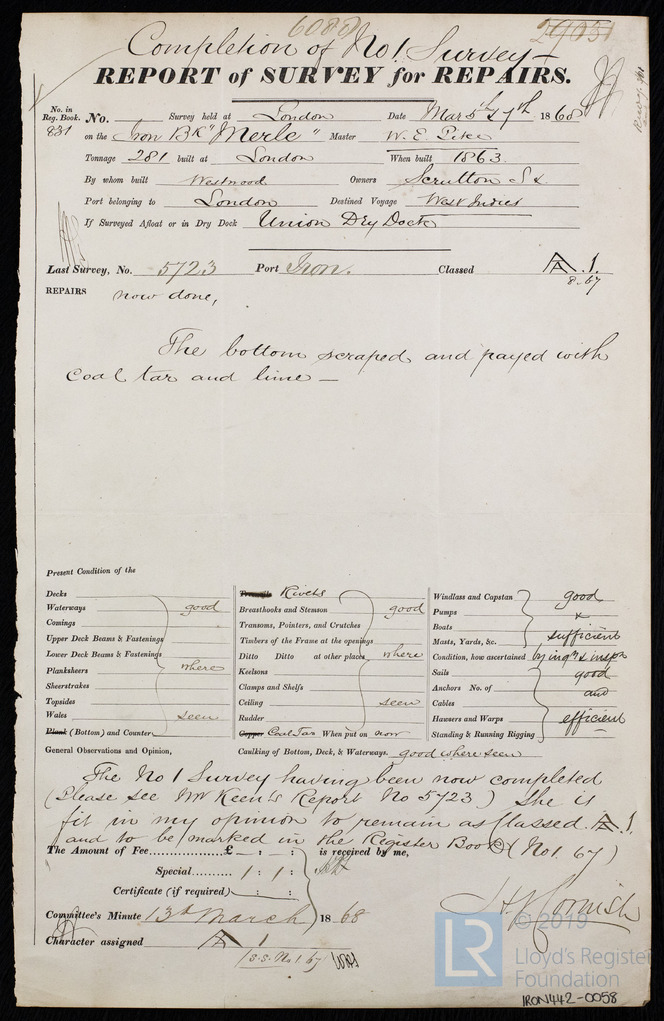 Completion of No 1 Survey -
REPORT of SURVEY for REPAIRS.
No. in Reg. Book. 831 No. Survey held at London Date Mar 5th & 7th 1868
on the Iron Bk "Merle" Master W. E. Pike
Tonnage 281 built at London When built 1863
By whom built Westwood Owners Scrutton S &
Port belonging to London Destined Voyage West Indies
If Surveyed Afloat or in Dry Dock Union Dry Dock
Last Survey, No. 5723 Port Iron. Classed A.1.
8.67
REPAIRS now done,
The bottom scraped and payed with
coal tar and lime —
Present Condition of the
Decks
Waterways good
Comings
Upper Deck Beams & Fastenings
Lower Deck Beams & Fastenings
Planksheers where
Sheerstrakes
Topsides
Wales seen
Plank (Bottom) and Counter
Treenails Rivets
Breasthooks and Stemson good
Transoms, Pointers, and Crutches
Timbers of the Frame at the openings
Ditto Ditto at other places where
Keelsons
Clamps and Shelfs
Ceiling seen
Rudder
Copper Coal Tar When put on now
Windlass and Capstan good
Pumps &
Boats
Masts, Yards, &c. sufficient
Condition, how ascertained by inqy & inspn
Sails good
Anchors No. of and
Cables
Hawsers and Warps efficient
Standing & Running Rigging
General Observations and Opinion, Caulking of Bottom, Deck, & Waterways. good where seen
The No 1 Survey having been now completed
(Please see Mr Keen's Report No 5723) She is
fit in my opinion to remain as Classed A 1.
and to be marked in the Register Book (No 1. 67)
The Amount of Fee £ : : is received by me,
Special 1 : 1 :
Certificate (if required) : :
H J Cornish
Committee's Minute 13th March 1868
Character assigned A 1
S.S. No 1. 67
© 2019
LR Lloyd's Register
Foundation
IRON442-0058